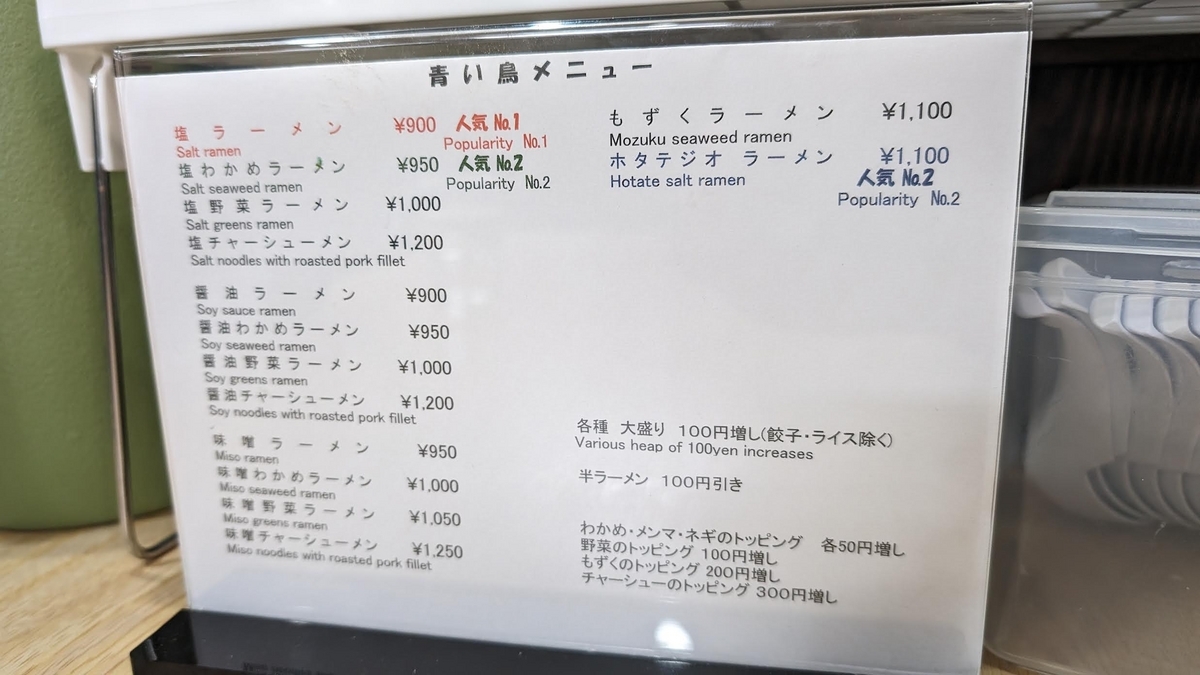 青い鳥メニュー
塩ラーメン ¥900 人気No.1
Salt ramen Popularity No.1
塩わかめラーメン ¥950 人気No.2
Salt seaweed ramen Popularity No.2
塩野菜ラーメン ¥1,000
Salt greens ramen
塩チャーシューメン ¥1,200
Salt noodles with roasted pork fillet
醤油ラーメン ¥900
Soy sauce ramen
醤油わかめラーメン ¥950
Soy seaweed ramen
醤油野菜ラーメン ¥1,000
Soy greens ramen
醤油チャーシューメン ¥1,200
Soy noodles with roasted pork fillet
味噌ラーメン ¥950
Miso ramen
味噌わかめラーメン ¥1,000
Miso seaweed ramen
味噌野菜ラーメン ¥1,050
Miso greens ramen
味噌チャーシューメン ¥1,250
Miso noodles with roasted pork fillet
もずくラーメン ¥1,100
Mozuku seaweed ramen
ホタテジオ ラーメン ¥1,100
Hotate salt ramen 人気No.2
Popularity No.2
各種 大盛り 100円増し(餃子・ライス除く)
Various heap of 100yen increases
半ラーメン 100円引き
わかめ・メンマ・ネギのトッピング 各50円増し
野菜のトッピング 100円増し
もずくのトッピング 200円増し
チャーシューのトッピング 300円増し